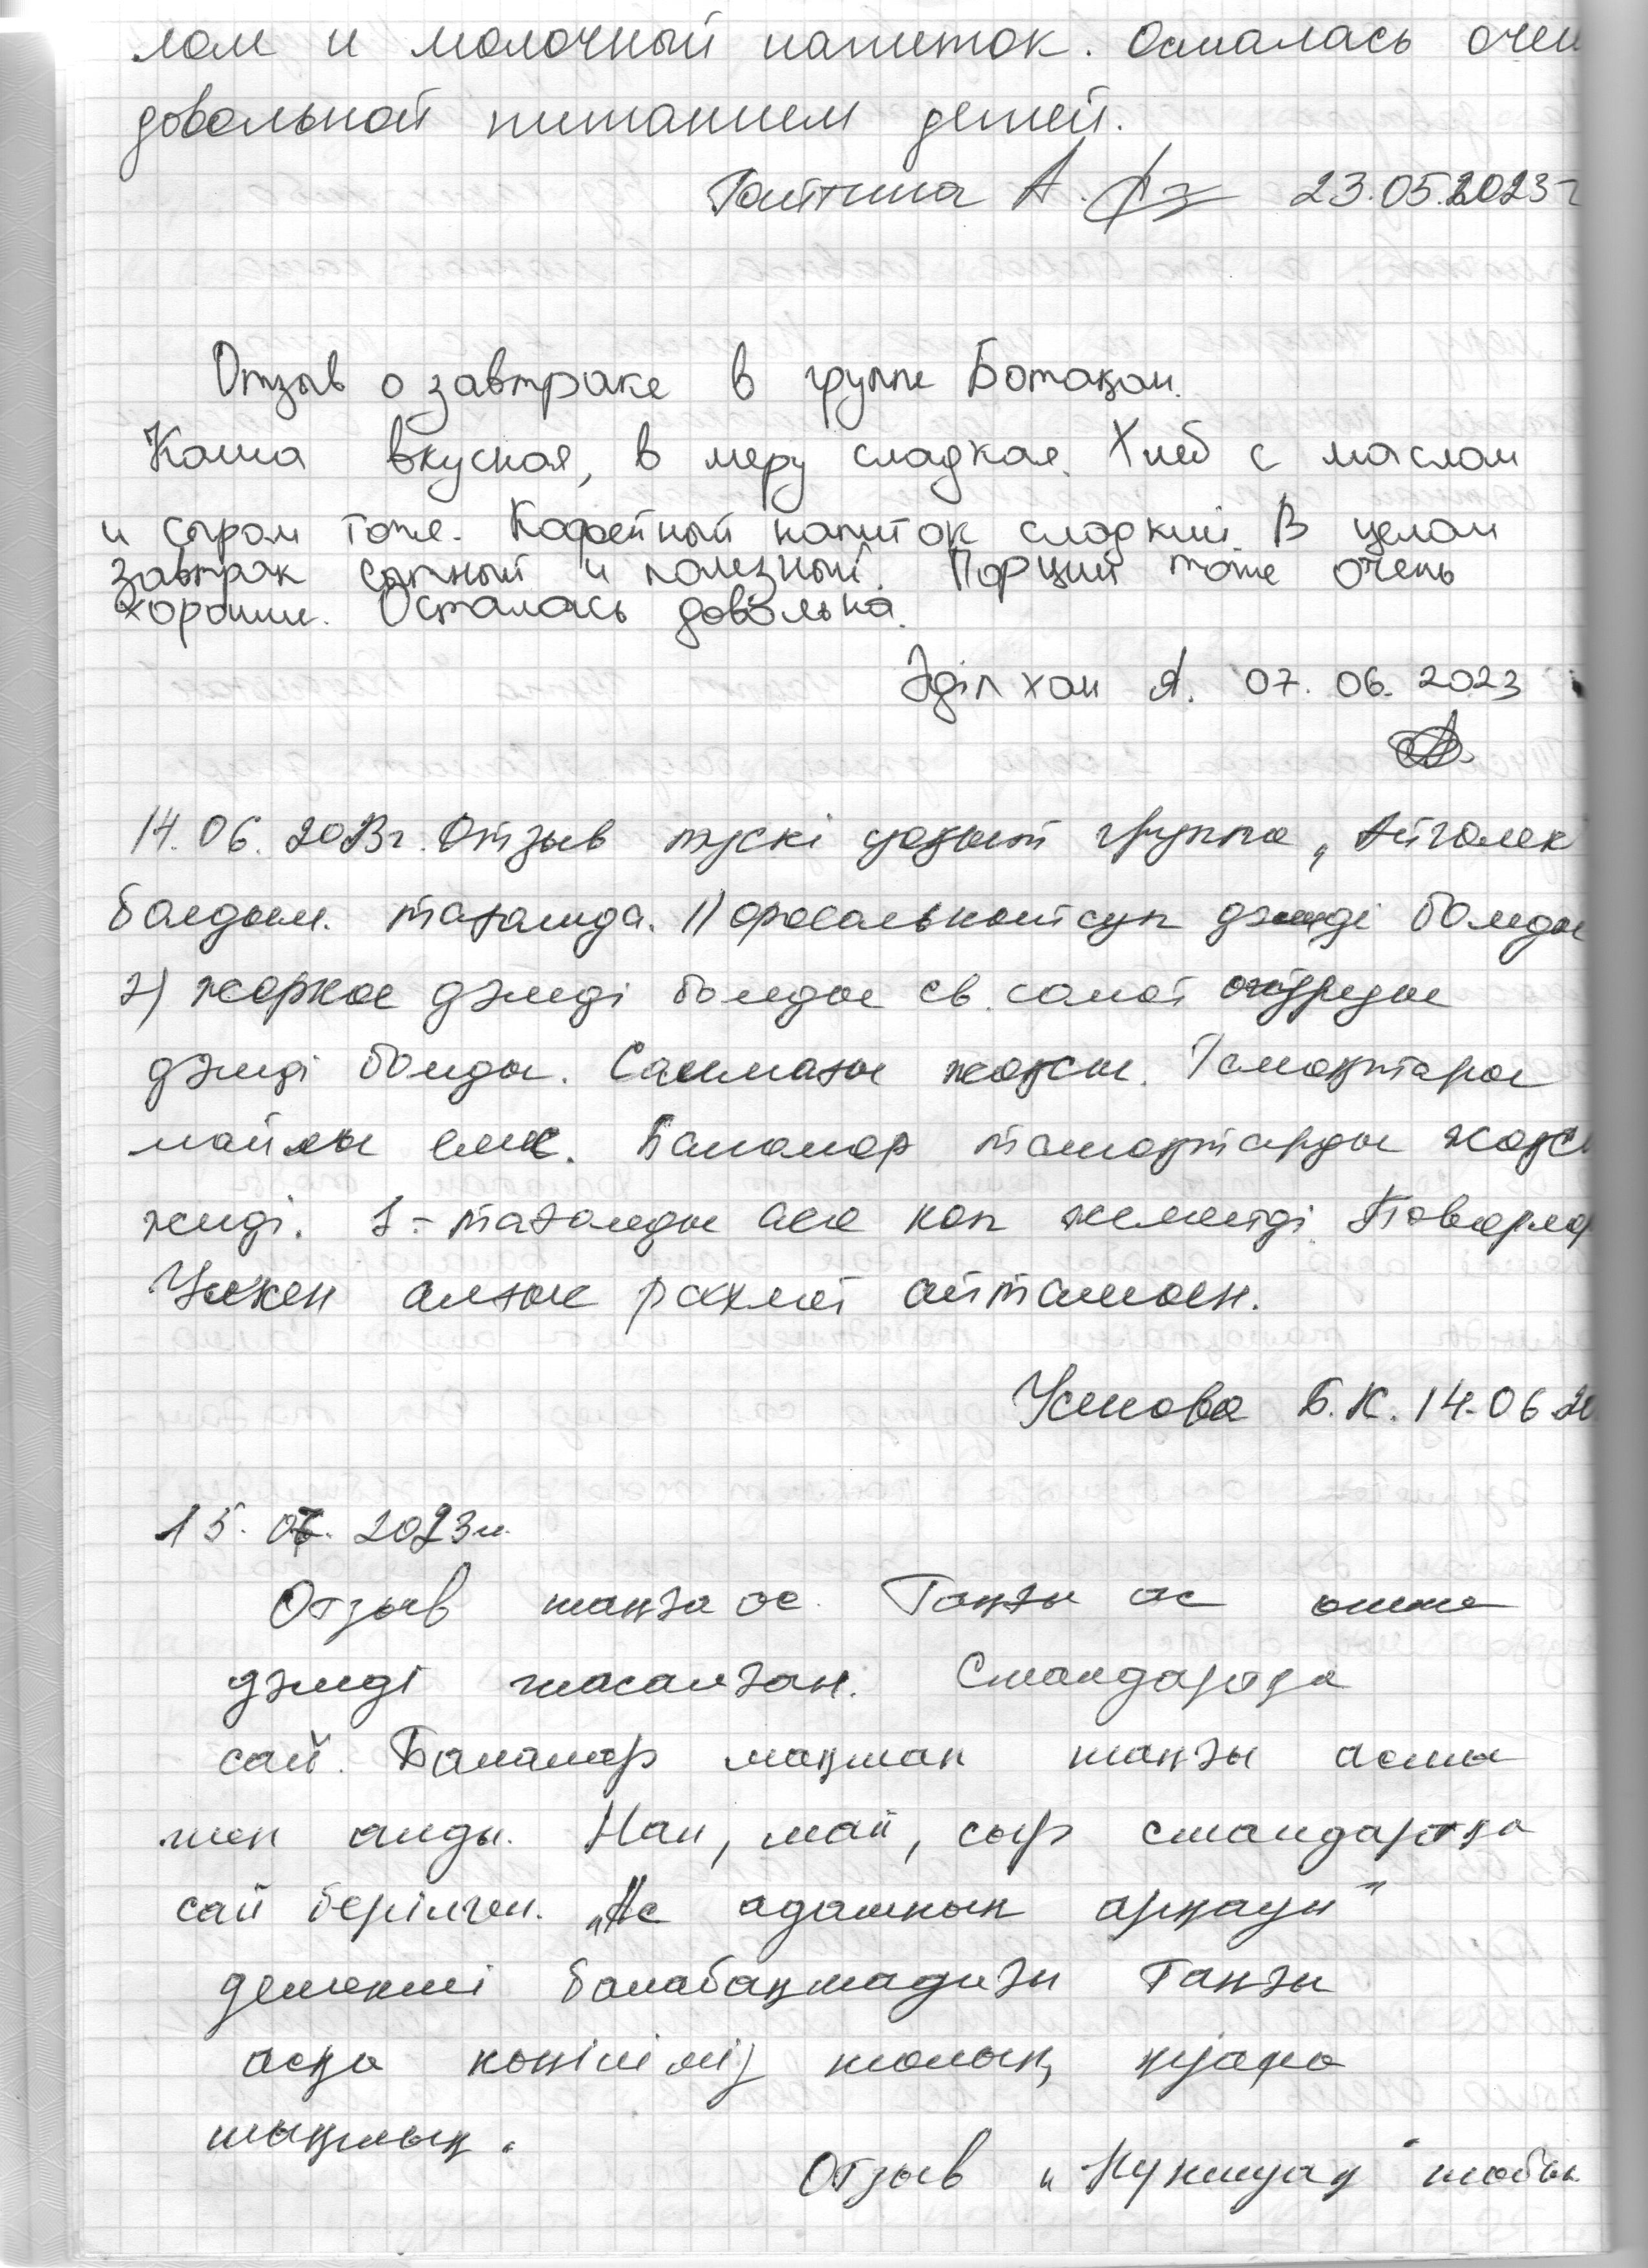 лом и молочный напиток. Осталась очен
довольной питанием детей.
А. 23.05.2023г
Отзыв о завтраке в группе Ботақан.
Каша вкусная, в меру сладкая. Хлеб с маслом
и сыром тоже. Кофейный напиток сладкий. В целом
завтрак сытный и полезный. Порции тоже очень
хорошие. Осталась довольна.
Әділхан А. 07.06.2023
14.06.2023г. Отзыв түскі уақыт группа „Айгөлек
болдым. тағамда. 1) фасольный суп дәмді болды
2) жаркое дәмді болды св. салат огурцы
дәмді болды. Салмағы жақсы. Тамақтары
майлы емес. Балалар тамақтарды жақсы
жейді. 1-тағамды аса көп жемейді. Поварлар
Үлкен алғыс рахмет айтамын.
Усенова Б.К. 14.06 20
15.06.2023ж.
Отзыв таңғы ас. Таңғы ас өте
дәмді жасалған. Стандартқа
сай. Балалар тоқтап таңғы асты
жеп алды. Нан, май, сыр стандартқа
сай берілген. „Ас адамның арқауы"
демекші балабақшадағы таңғы
асқа көңіліміз толып, риза
шықтық.
Отзыв „Күншуақ" тобы